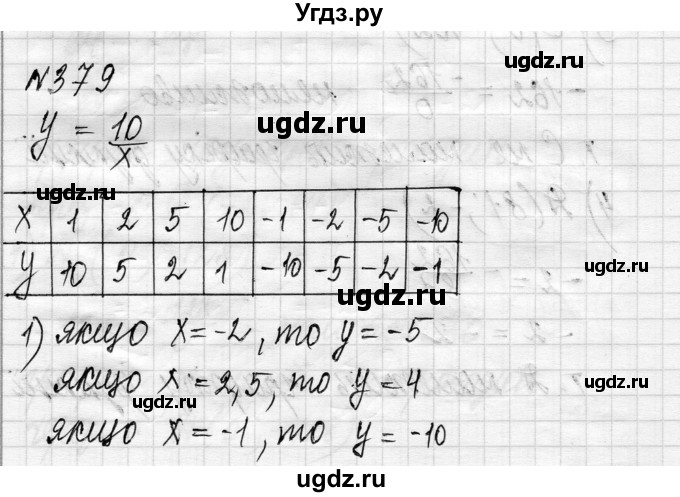 Угдз.ру
№379
y = 10/x
x 1 2 5 10 -1 -2 -5 -10
y 10 5 2 1 -10 -5 -2 -1
1) якщо x = -2, то y = -5
якщо x = 2,5, то y = 4
якщо x = -1, то y = -10
ugdz.ru
ugdz.ru
ugdz.ru
ugdz.ru
ugdz.ru
ugdz.ru
ugdz.ru
ugdz.ru
ugdz.ru